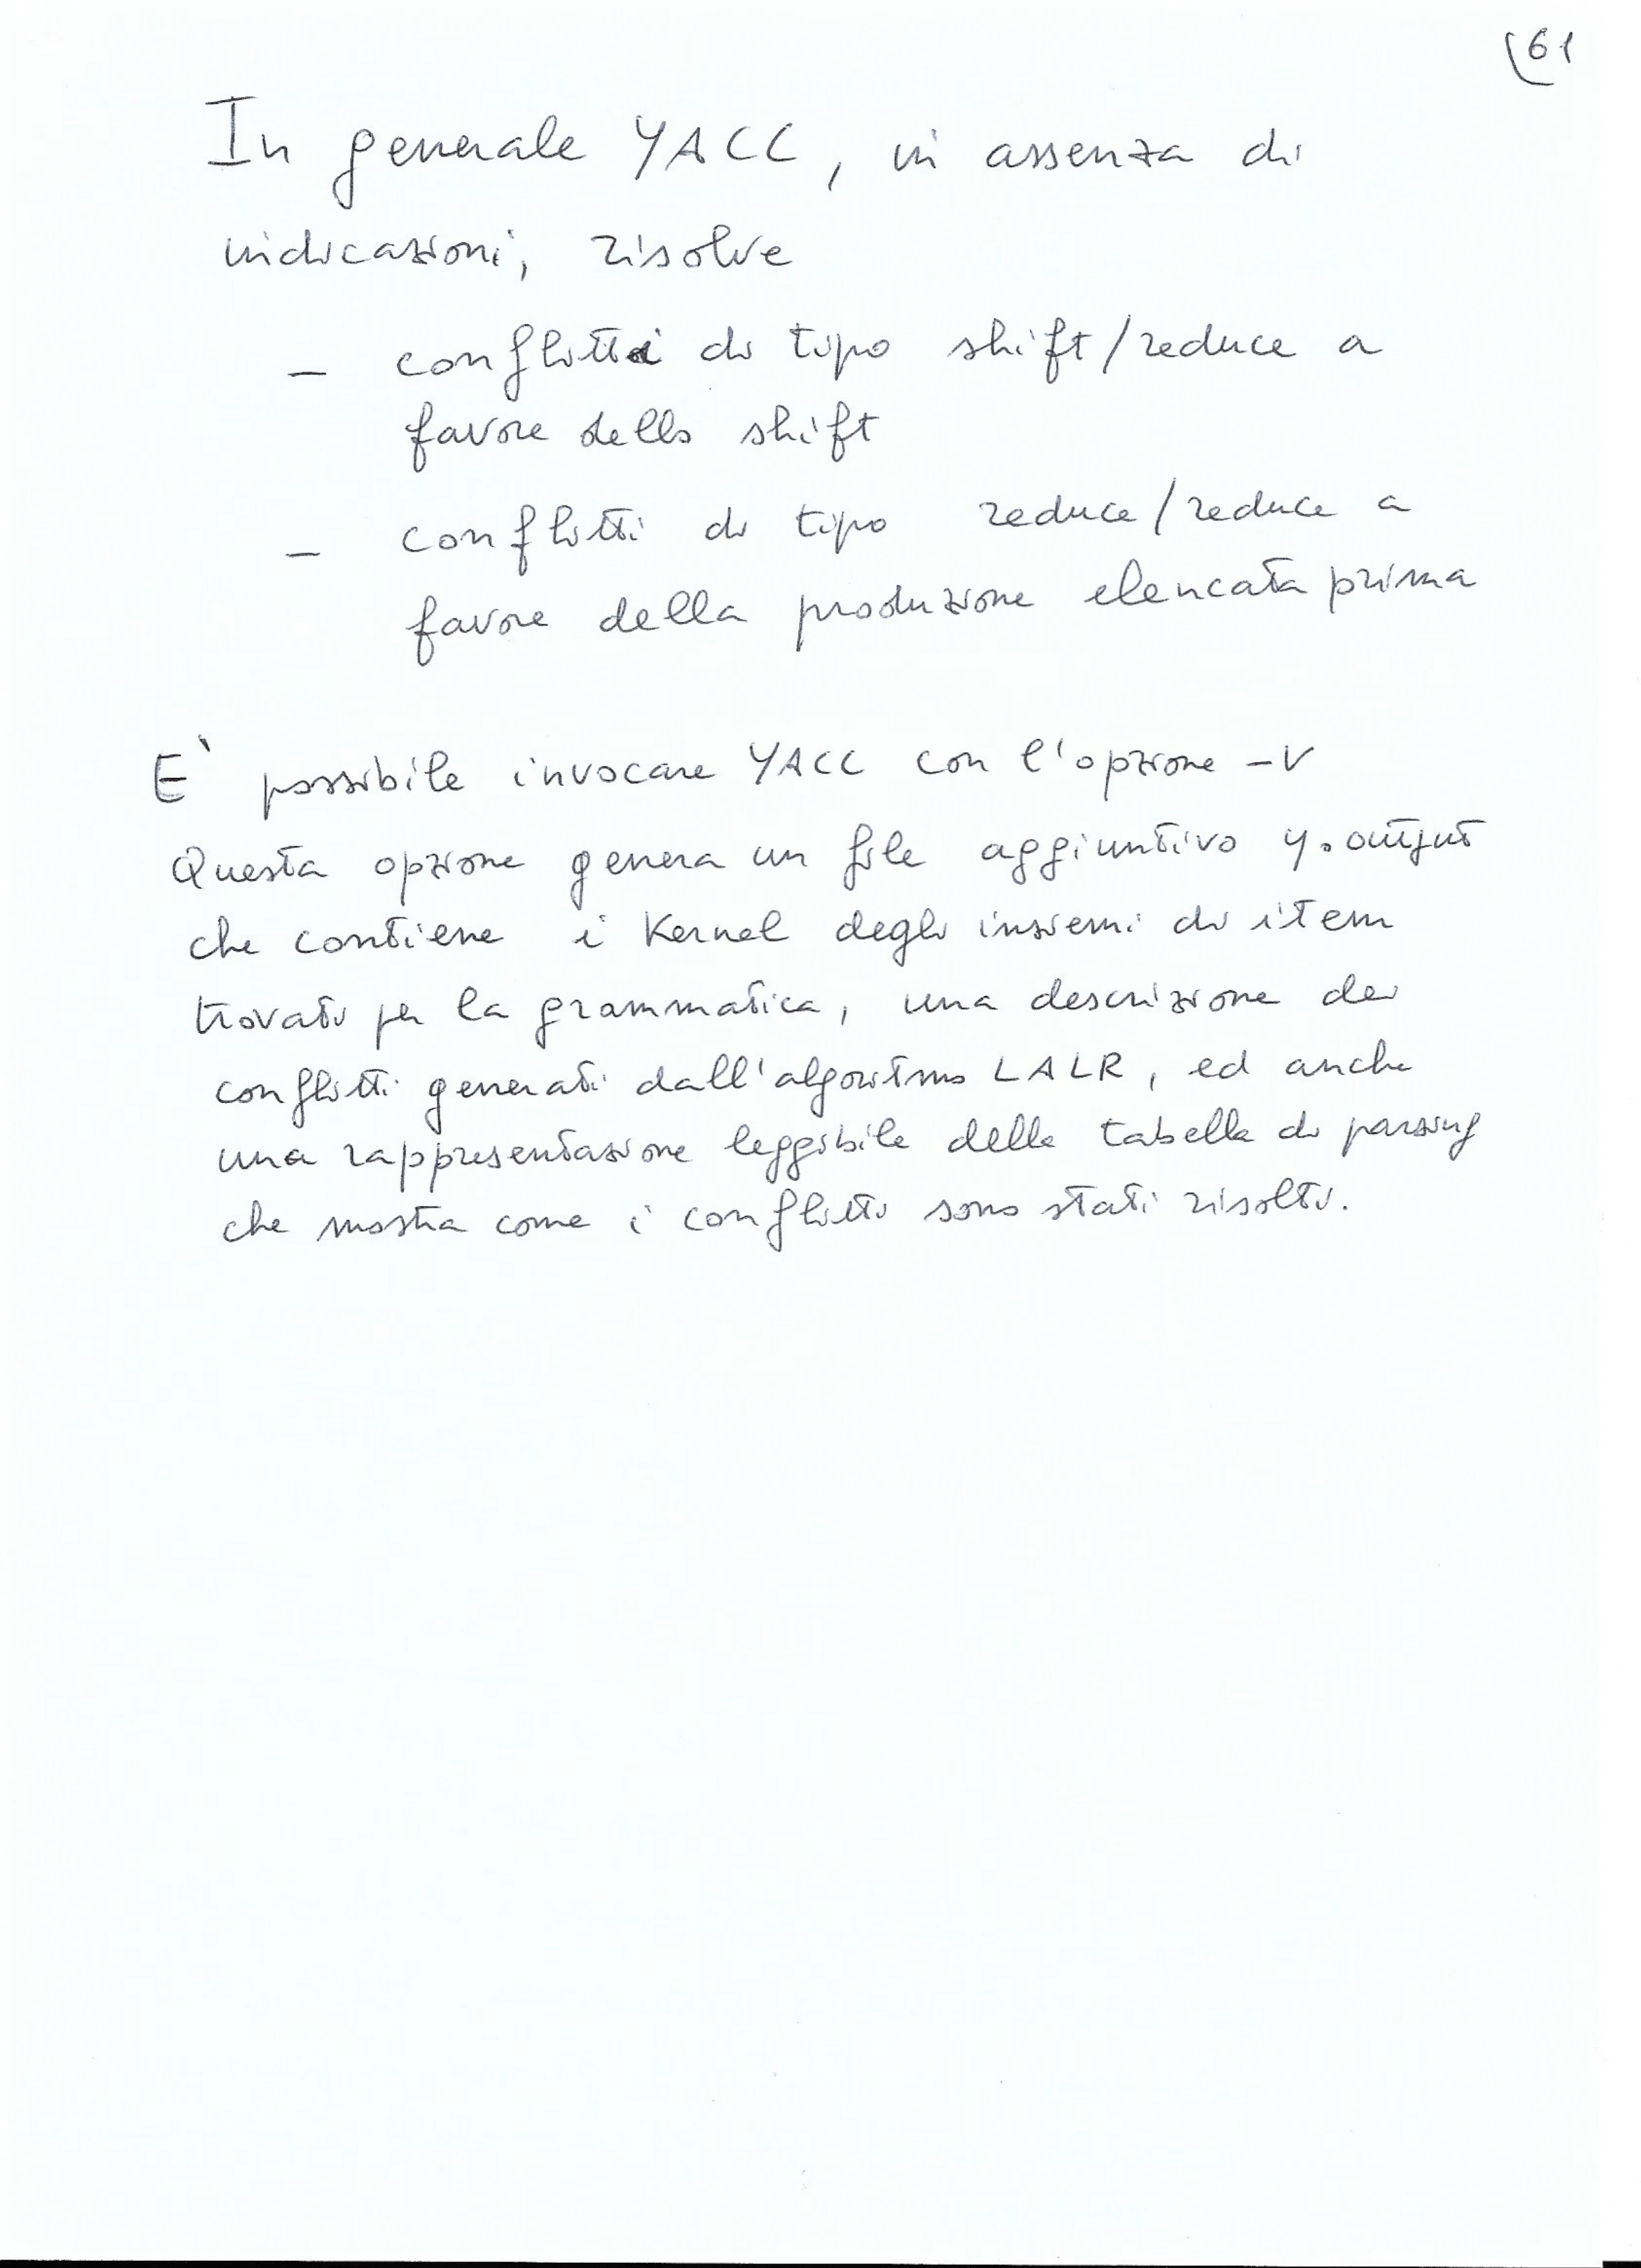 61
In generale YACC, in assenza di
indicazioni, risolve
- conflitti di tipo shift/reduce a
favore dello shift
- conflitti di tipo reduce/reduce a
favore della produzione elencata prima
E` possibile invocare YACC con l'opzione -v
Questa opzione genera un file aggiuntivo y.output
che contiene i kernel degli insiemi di item
trovati per la grammatica, una descrizione dei
conflitti generati dall'algoritmo LALR, ed anche
una rappresentazione leggibile delle tabelle di parsing
che mostra come i conflitti sono stati risolti.